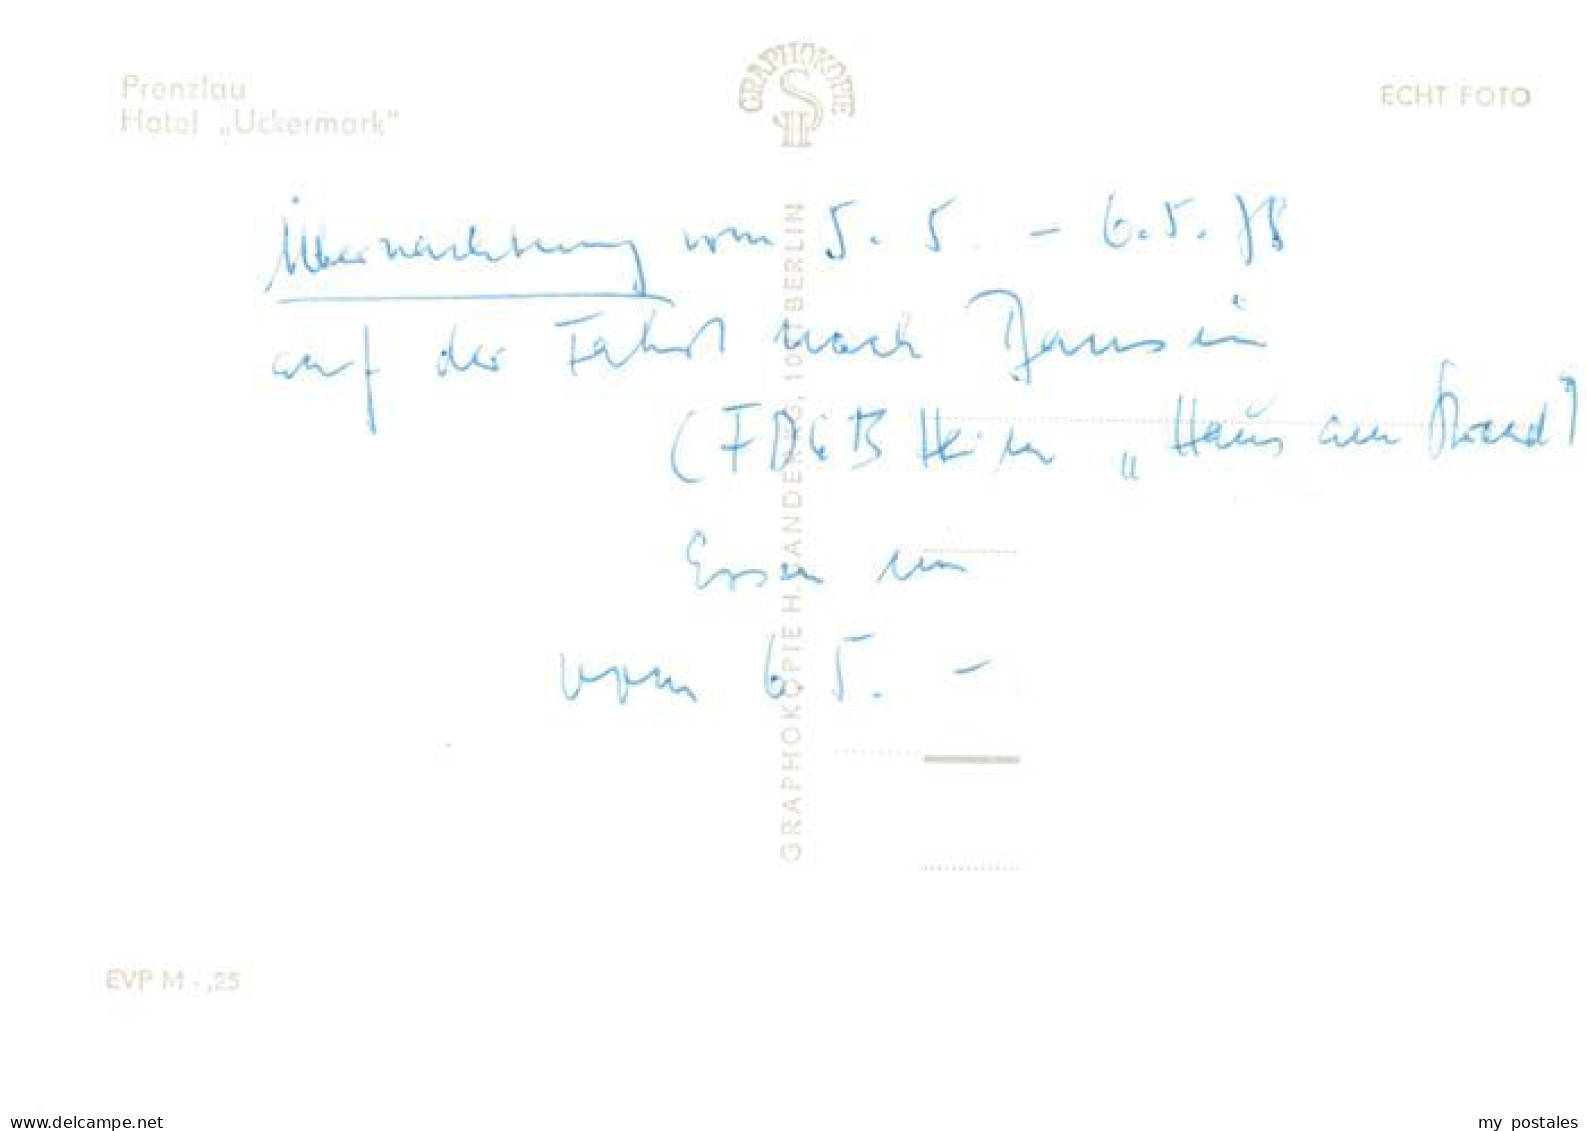 Prenzlau
Hotel „Uckermark"
GRAPHOKOPIE
H S
ECHT FOTO
Übernachtung vom 5. 5. - 6.5. 78
auf der Fahrt nach Bansin
(FDGB Heim „Haus am Strand")
Essen im
vom 6 5. -
GRAPHOKOPIE H. SANDER KG, 1071 BERLIN
EVP M -,25
www.delcampe.net
my postales